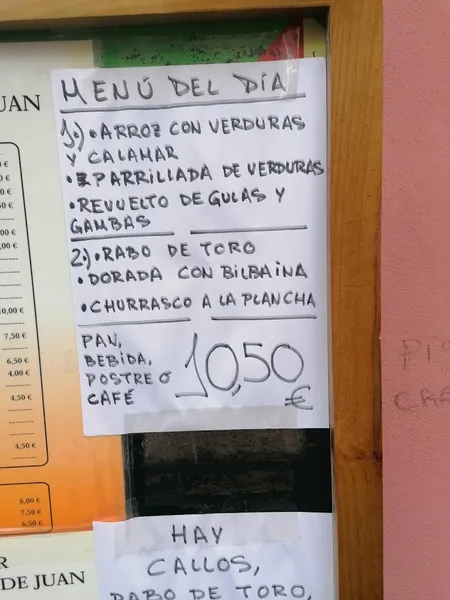 UAN
MENÚ DEL DÍA
1.) • ARROZ CON VERDURAS
Y CALAMAR
• PARRILLADA DE VERDURAS
• REVUELTO DE GULAS Y
GAMBAS
2.) • RABO DE TORO
• DORADA CON BILBAINA
• CHURRASCO A LA PLANCHA
PAN,
BEBIDA,
POSTRE O
CAFÉ
10,50
€
7,50 €
6,50 €
4,00 €
4,50 €
4,50 €
6,00 €
7,50 €
6,50 €
DE JUAN
HAY
CALLOS,
RABO DE TORO,